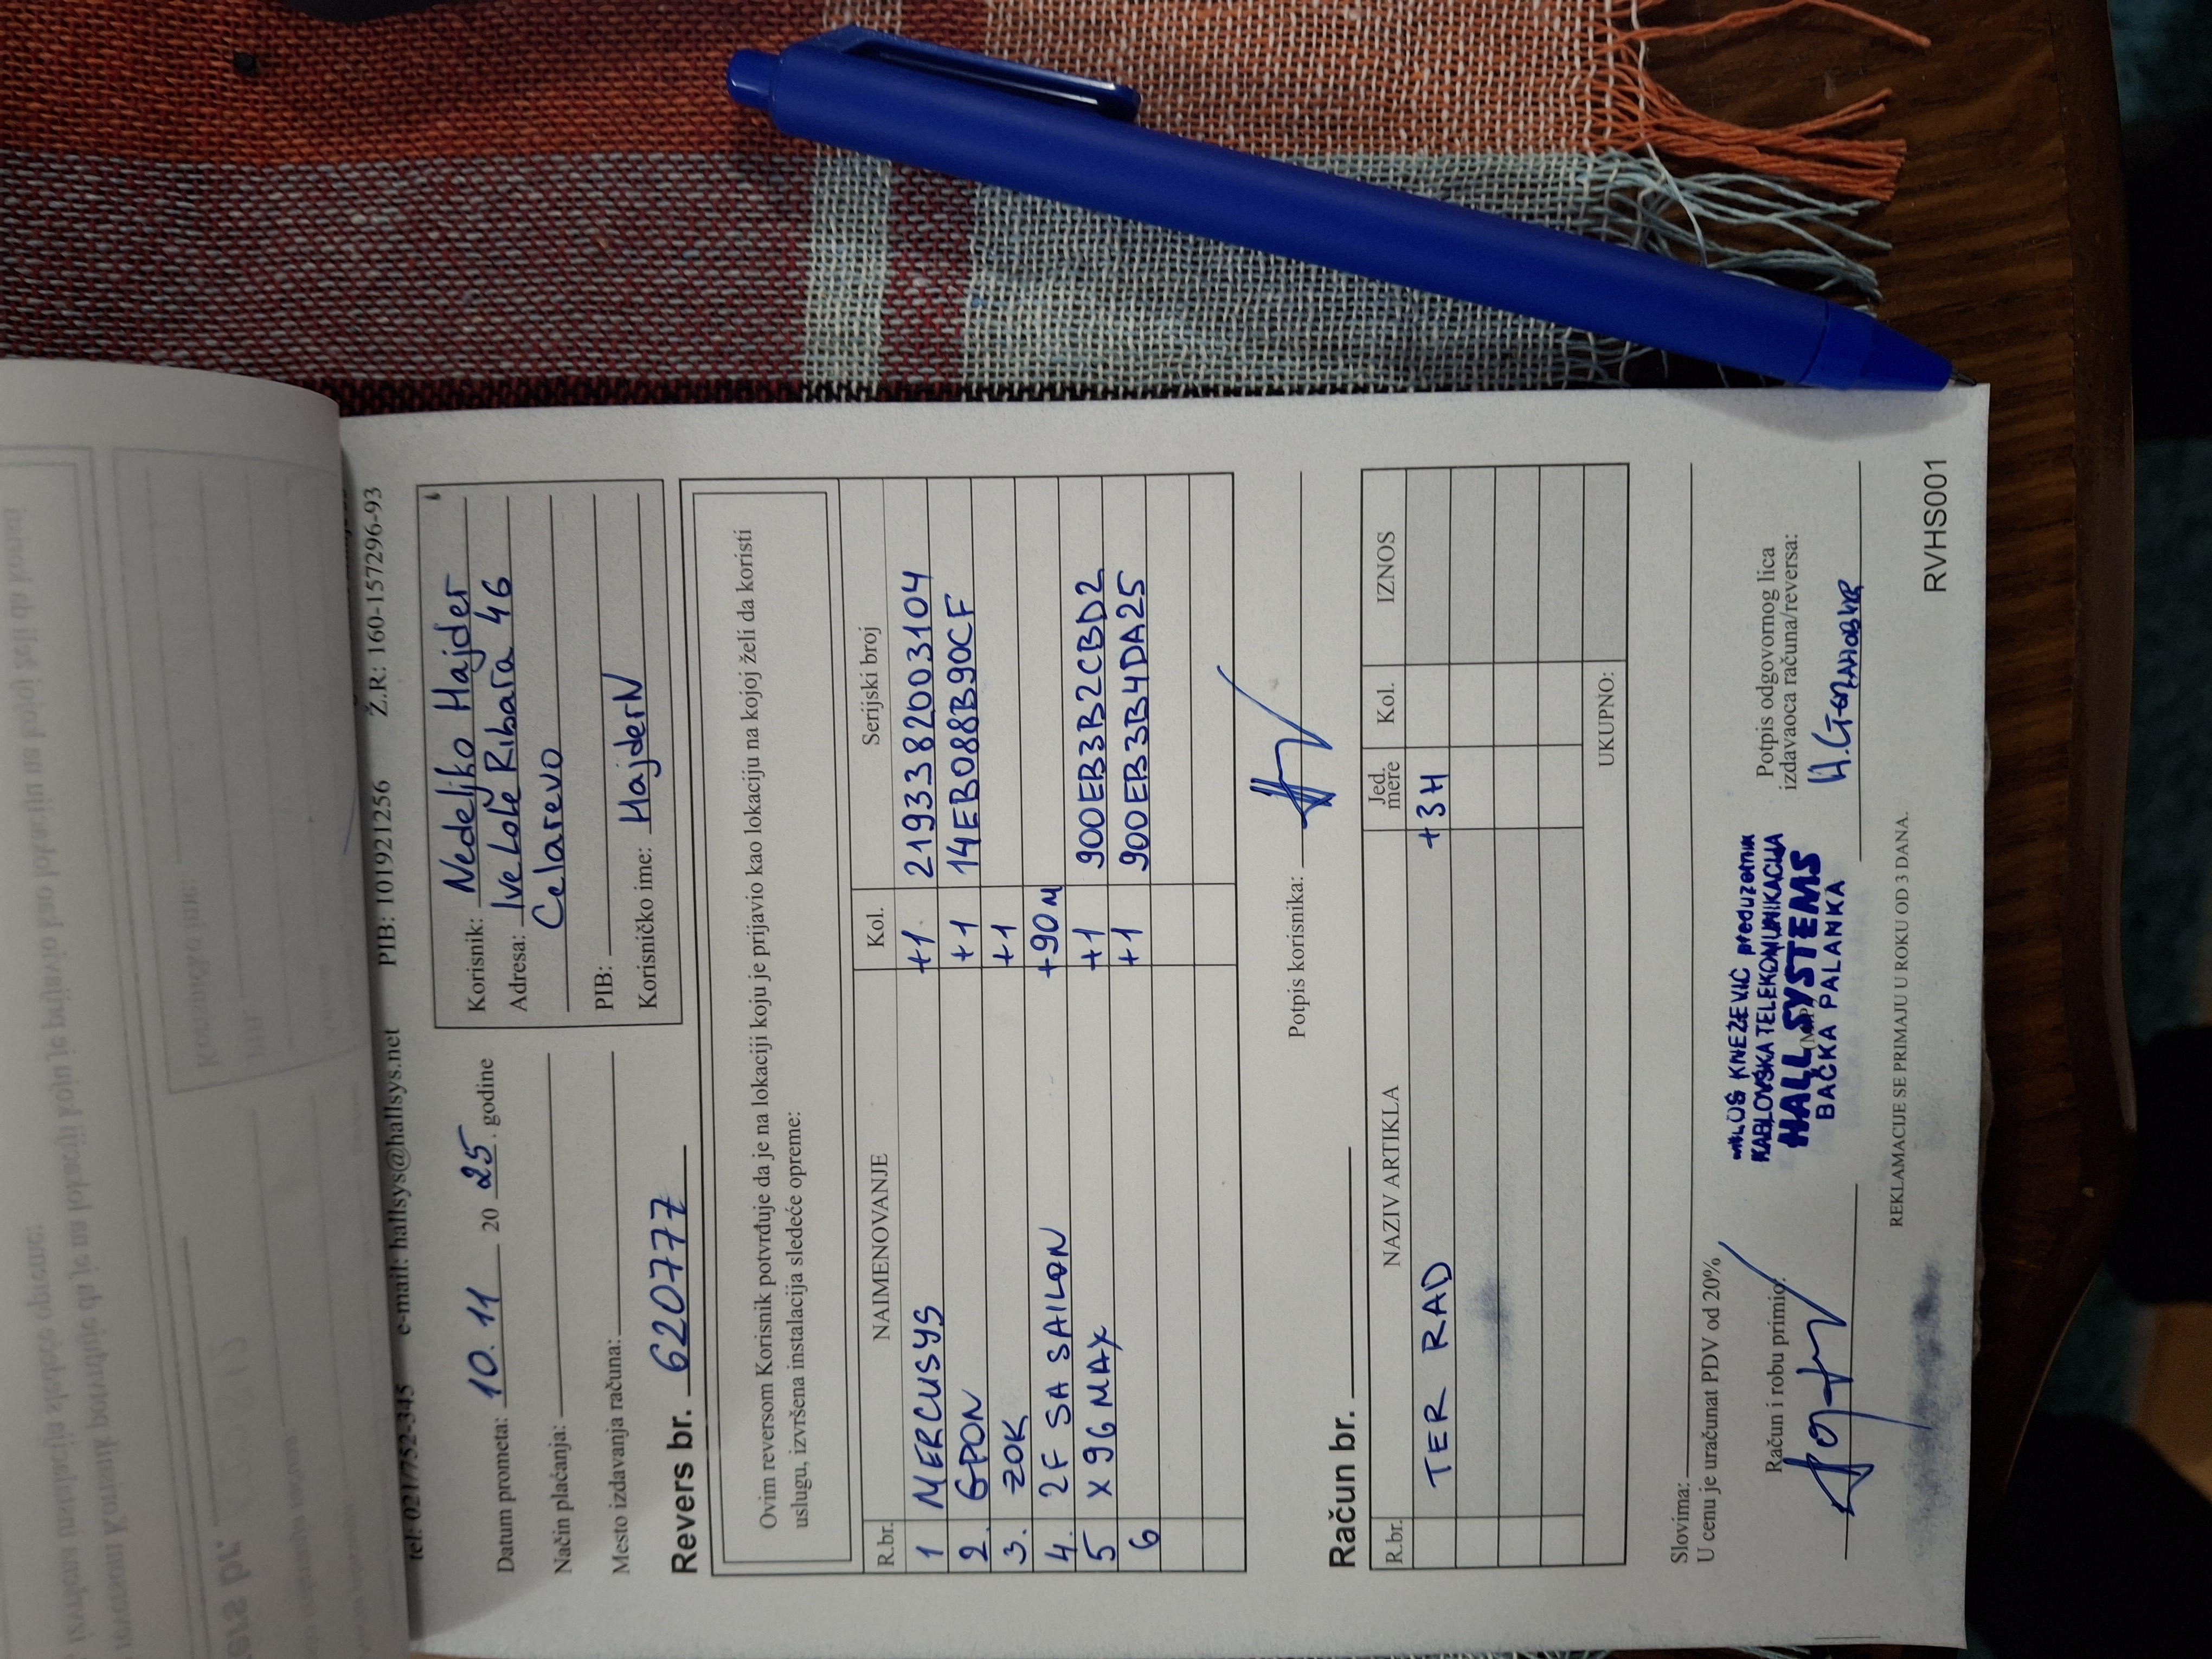 tel: 021/752-345 e-mail: hallsys@hallsys.net PIB: 101921256 Ž.R.: 160-157296-93
Datum prometa: 10. 11 20 25. godine
Način plaćanja:
Mesto izdavanja računa:
Korisnik: Nedeljko Hajder
Adresa: Ive Lole Ribara 46
Čelarevo
PIB:
Korisničko ime: HajderN
Revers br. 620777
Ovim reversom Korisnik potvrđuje da je na lokaciji koju je prijavio kao lokaciju na kojoj želi da koristi
uslugu, izvršena instalacija sledeće opreme:
R.br. NAIMENOVANJE Kol. Serijski broj
1 MERCUSYS +1 2193382003104
2. GPON +1 14EB088B90CF
3. ZOK +1
4. 2F SA SAILOM +90m
5 X96 MAX +1 900EB3B2CBD2
6 +1 900EB3B4DA25
Potpis korisnika:
Račun br.
R.br. NAZIV ARTIKLA Jed. mere Kol. IZNOS
TER RAD +3H
UKUPNO:
Slovima:
U cenu je uračunat PDV od 20%
Račun i robu primio:
MILOŠ KNEŽEVIĆ preduzetnik
KABLOVSKA TELEKOMUNIKACIJA
HALL SYSTEMS
BAČKA PALANKA
Potpis odgovornog lica
izdavaoca računa/reversa:
REKLAMACIJE SE PRIMAJU U ROKU OD 3 DANA.
RVHS001